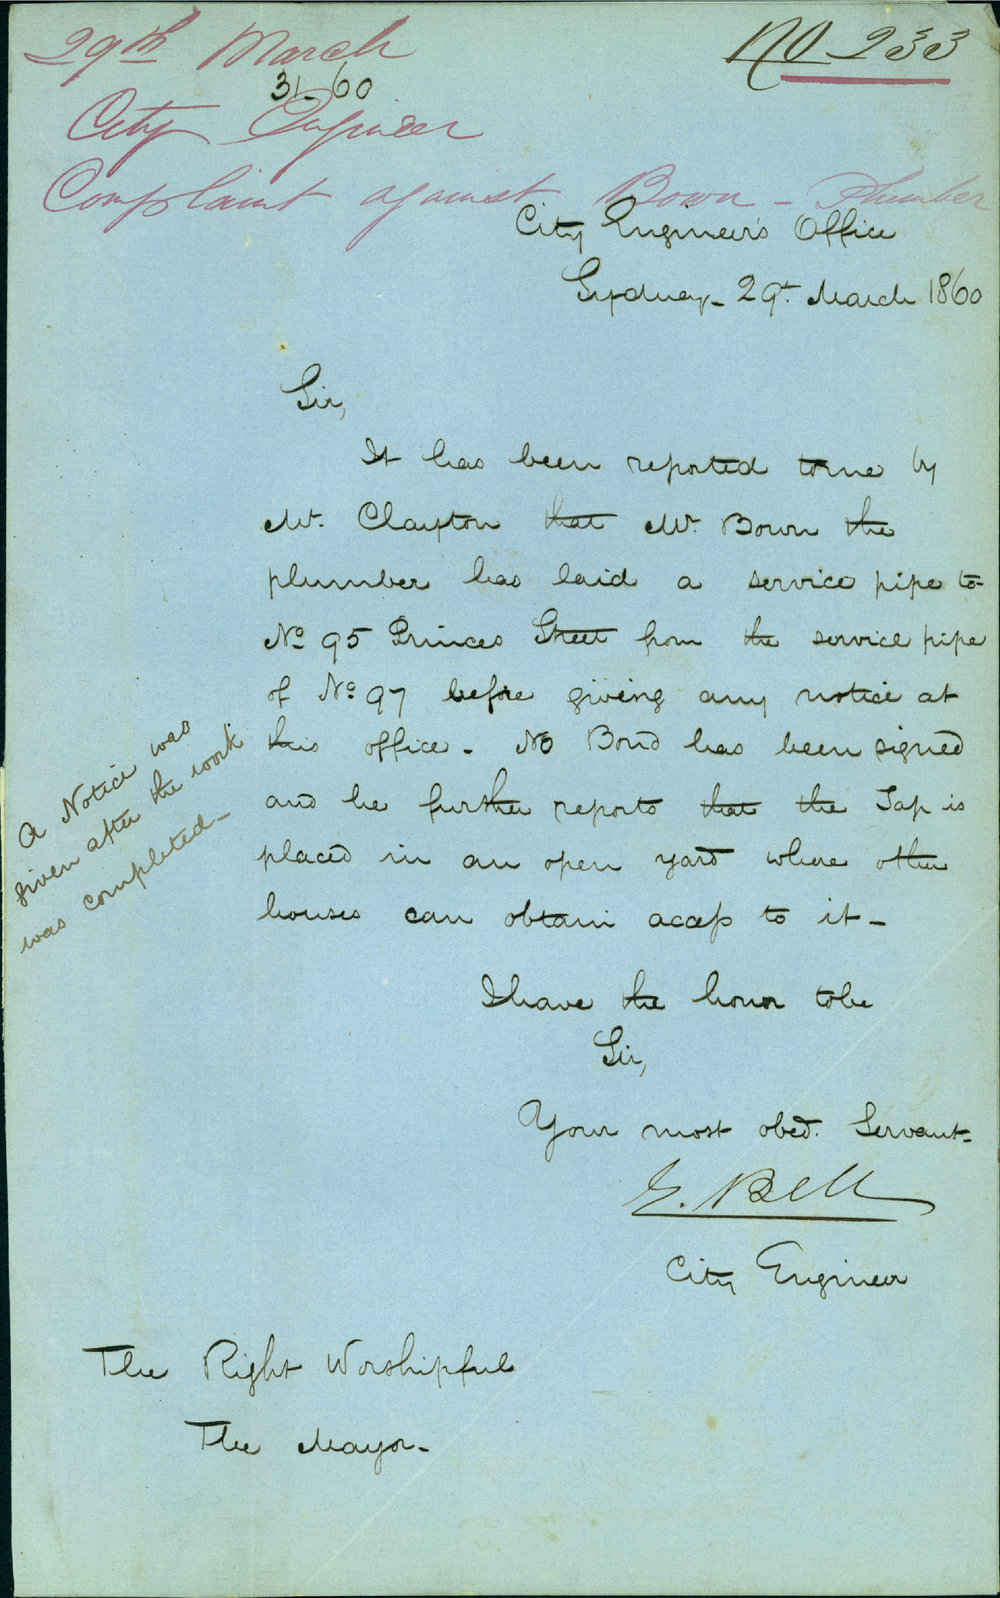 29th March
No 233
31-60
City Engineer
Complaint against Bown - Plumber
City Engineer's Office
Sydney - 29t. March 1860
Sir,
It has been reported to me by
Mr. Clayton that Mr. Bown the
plumber has laid a service pipe to
No 95 Princes Street from the service pipe
of No 97 before giving any notice at
this office - No Bond has been signed
and he further reports that the Tap is
placed in an open yard where other
houses can obtain access to it -
A Notice was
given after the work
was completed -
I have the honor to be
Sir,
Your most obed. Servant -
E. Bell
City Engineer
The Right Worshipful
The Mayor -